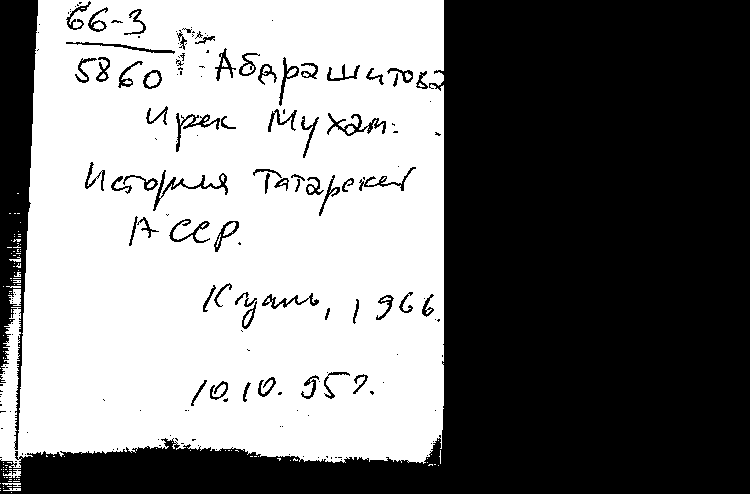 66-3
5860 Абдрашитова
Ирек Мухам.
История Татарской
АССР.
Казань, 1966.
10.10.95г.